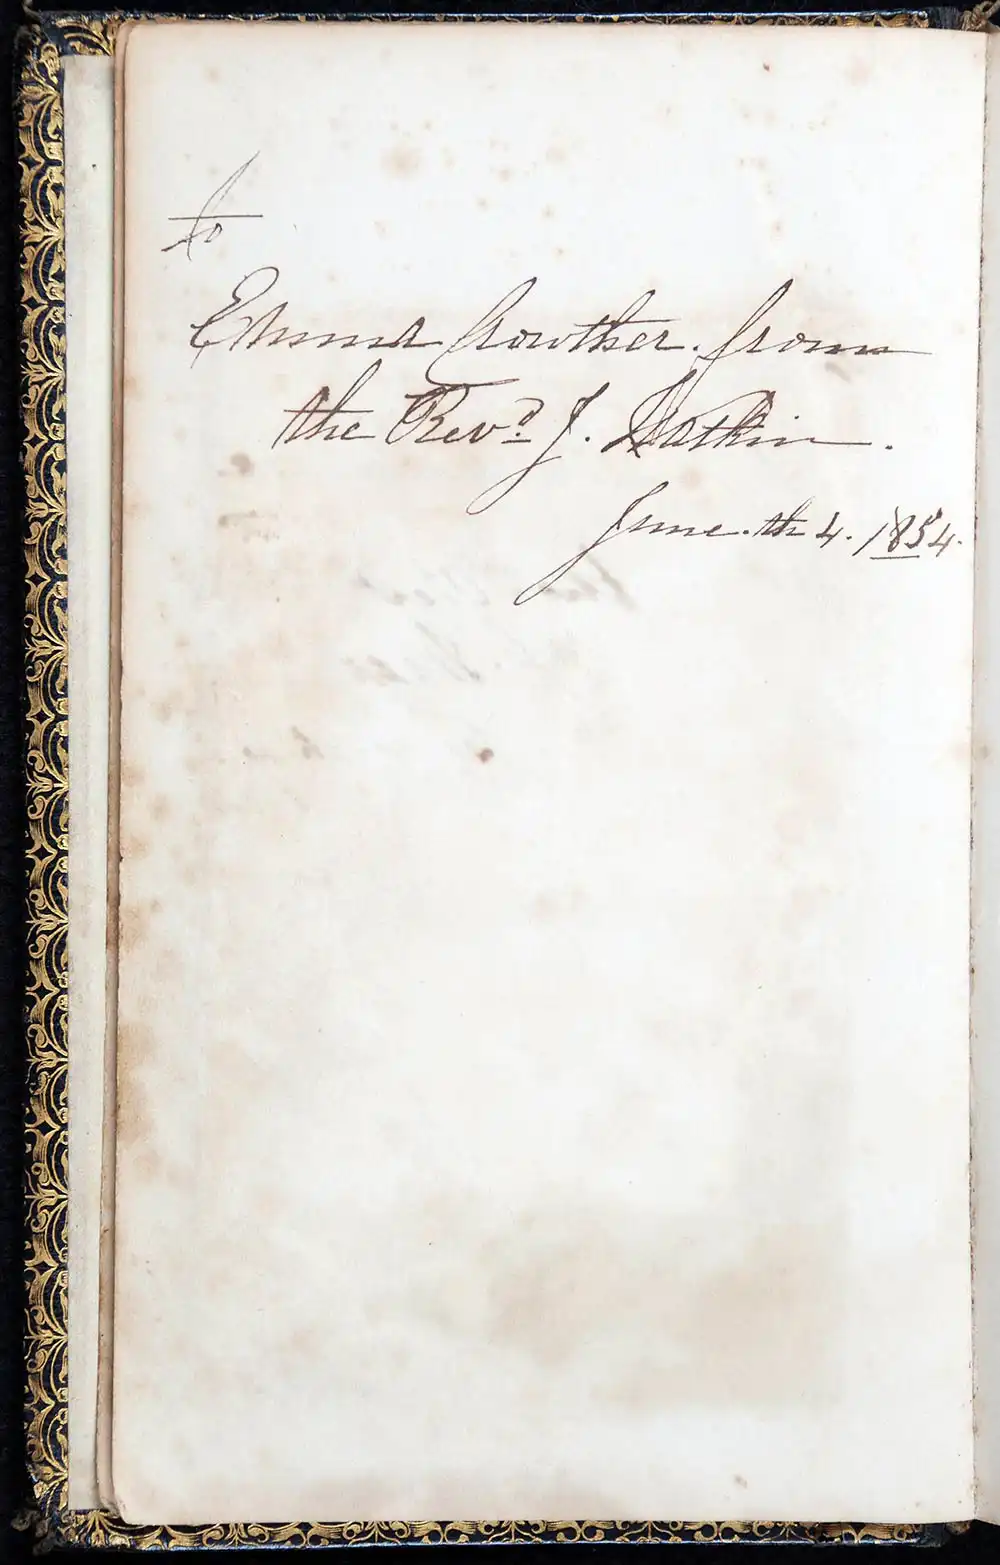 to
Emma Crowther. from
the Rev.d J. Watkin.
June. th 4. 1854.